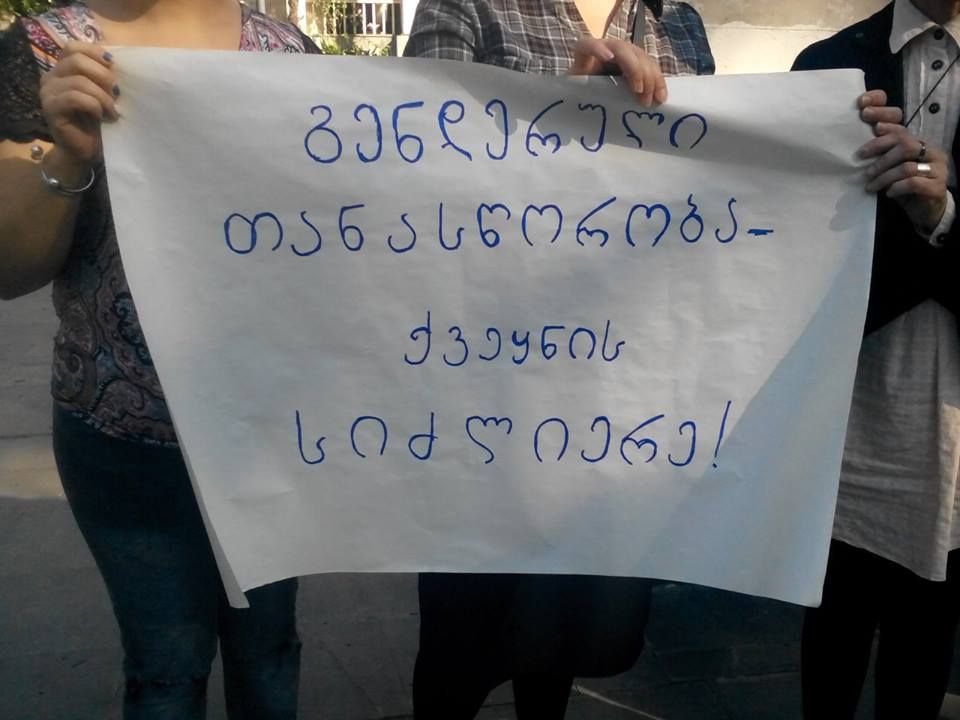 გენდერული
თანასწორობა-
ქვეყნის
სიძლიერე!